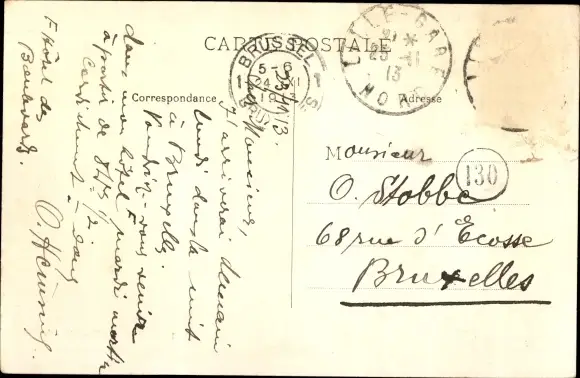 CARTES POSTALE
Correspondance
Adresse
BRUSSEL
5-6
24 XI
1913
LILLE-GARE
23-11
13
NORD
130
23/11/13.
Monsieur,
J'arriverai demain
lundi dans la nuit
à Bruxelles.
Voudriez-vous venir
dans mon hôtel mardi matin
à partir de 8 hs 1/2
O. Henning.
Hôtel des
Boulevards.
Monsieur
O. Stobbe
68 rue d'Ecosse
Bruxelles